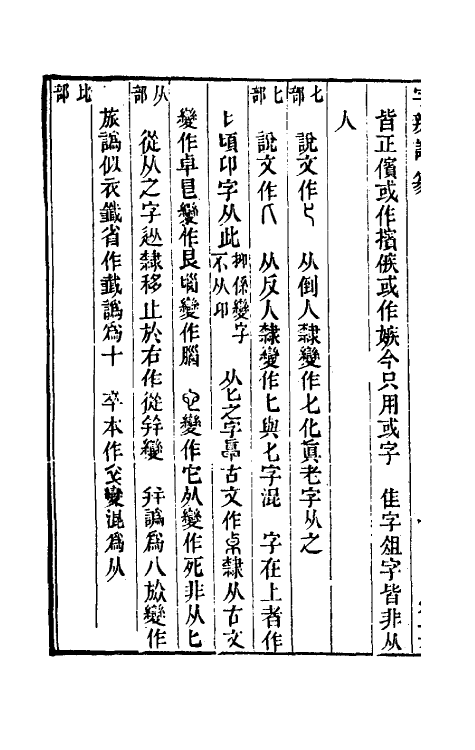 皆正儐或作擯㑵或作嫉今只用或字　隹字俎字皆非从
人
𠤎部
說文作　从倒人隸變作七化眞老字从之
匕部
說文作　从反人隸變作匕與七字混　字在上者作
⺊頃卬字从此抑係變字不从卬　从匕之字　古文作㮚隸从古文
變作卓㫐變作艮𡿺變作腦　變作它　變作死非从匕
从部
從从之字　隸移止於右作從　變　幷譌爲八㫃變作
旅譌似衣鐵省作　譌爲十　卒本作　變混爲从
比部